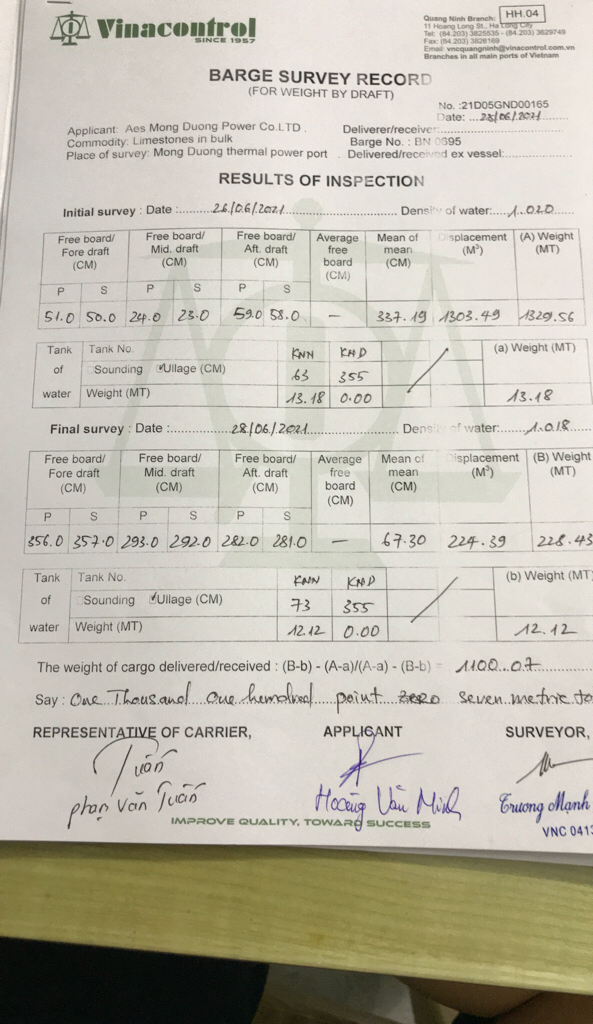 Vinacontrol
SINCE 1957
HH.04
Quang Ninh Branch:
11 Hoang Long St., Ha Long City
Tel: (84.203) 3825535 - (84.203) 3829749
Fax: (84.203) 3826169
Email: vncquangninh@vinacontrol.com.vn
Branches in all main ports of Vietnam
BARGE SURVEY RECORD
(FOR WEIGHT BY DRAFT)
No. :21D05GND00165
Date: ...28/06/2021
Applicant: Aes Mong Duong Power Co.LTD . Deliverer/receiver:
Commodity: Limestones in bulk Barge No. : BN 0695
Place of survey: Mong Duong thermal power port . Delivered/received ex vessel:
RESULTS OF INSPECTION
Initial survey : Date : 26/06/2021 Density of water: 1.020
Free board/ Fore draft (CM) Free board/ Mid. draft (CM) Free board/ Aft. draft (CM) Average free board (CM) Mean of mean (CM) isplacement (M³) (A) Weight (MT)
P S P S P S
51.0 50.0 24.0 23.0 59.0 58.0 — 337.19 1303.49 1329.56
Tank of water Tank No. KNN KND (a) Weight (MT)
Sounding Ullage (CM) 63 355
Weight (MT) 13.18 0.00 13.18
Final survey : Date : 28/06/2021 Density of water: 1.018
Free board/ Fore draft (CM) Free board/ Mid. draft (CM) Free board/ Aft. draft (CM) Average free board (CM) Mean of mean (CM) isplacement (M³) (B) Weight (MT)
P S P S P S
356.0 357.0 293.0 292.0 282.0 281.0 — 67.30 224.39 228.43
Tank of water Tank No. KNN KND (b) Weight (MT
Sounding Ullage (CM) 73 355
Weight (MT) 12.12 0.00 12.12
The weight of cargo delivered/received : (B-b) - (A-a)/(A-a) - (B-b) = 1100.07
Say : One Thousand one hemdred point zero seven metric to
REPRESENTATIVE OF CARRIER, APPLICANT SURVEYOR,
Tuấn
phạn Văn Tuấn Hoàng Văn Minh Trương Mạnh
VNC 0413
IMPROVE QUALITY, TOWARD SUCCESS